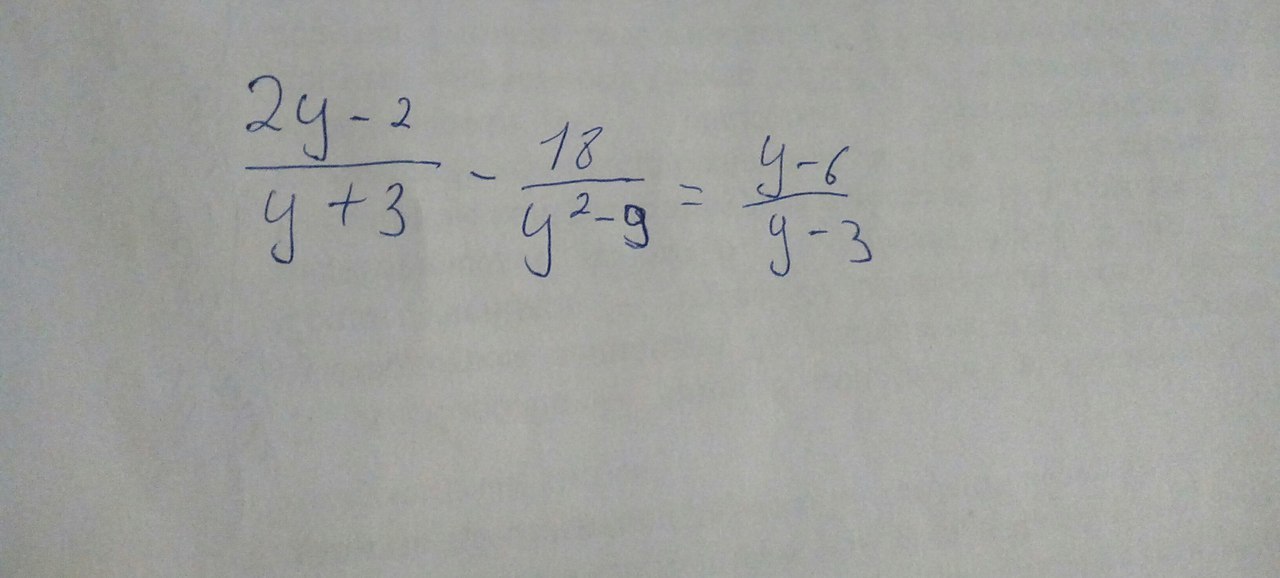 \frac{2y-2}{y+3} - \frac{18}{y^2-9} = \frac{y-6}{y-3}